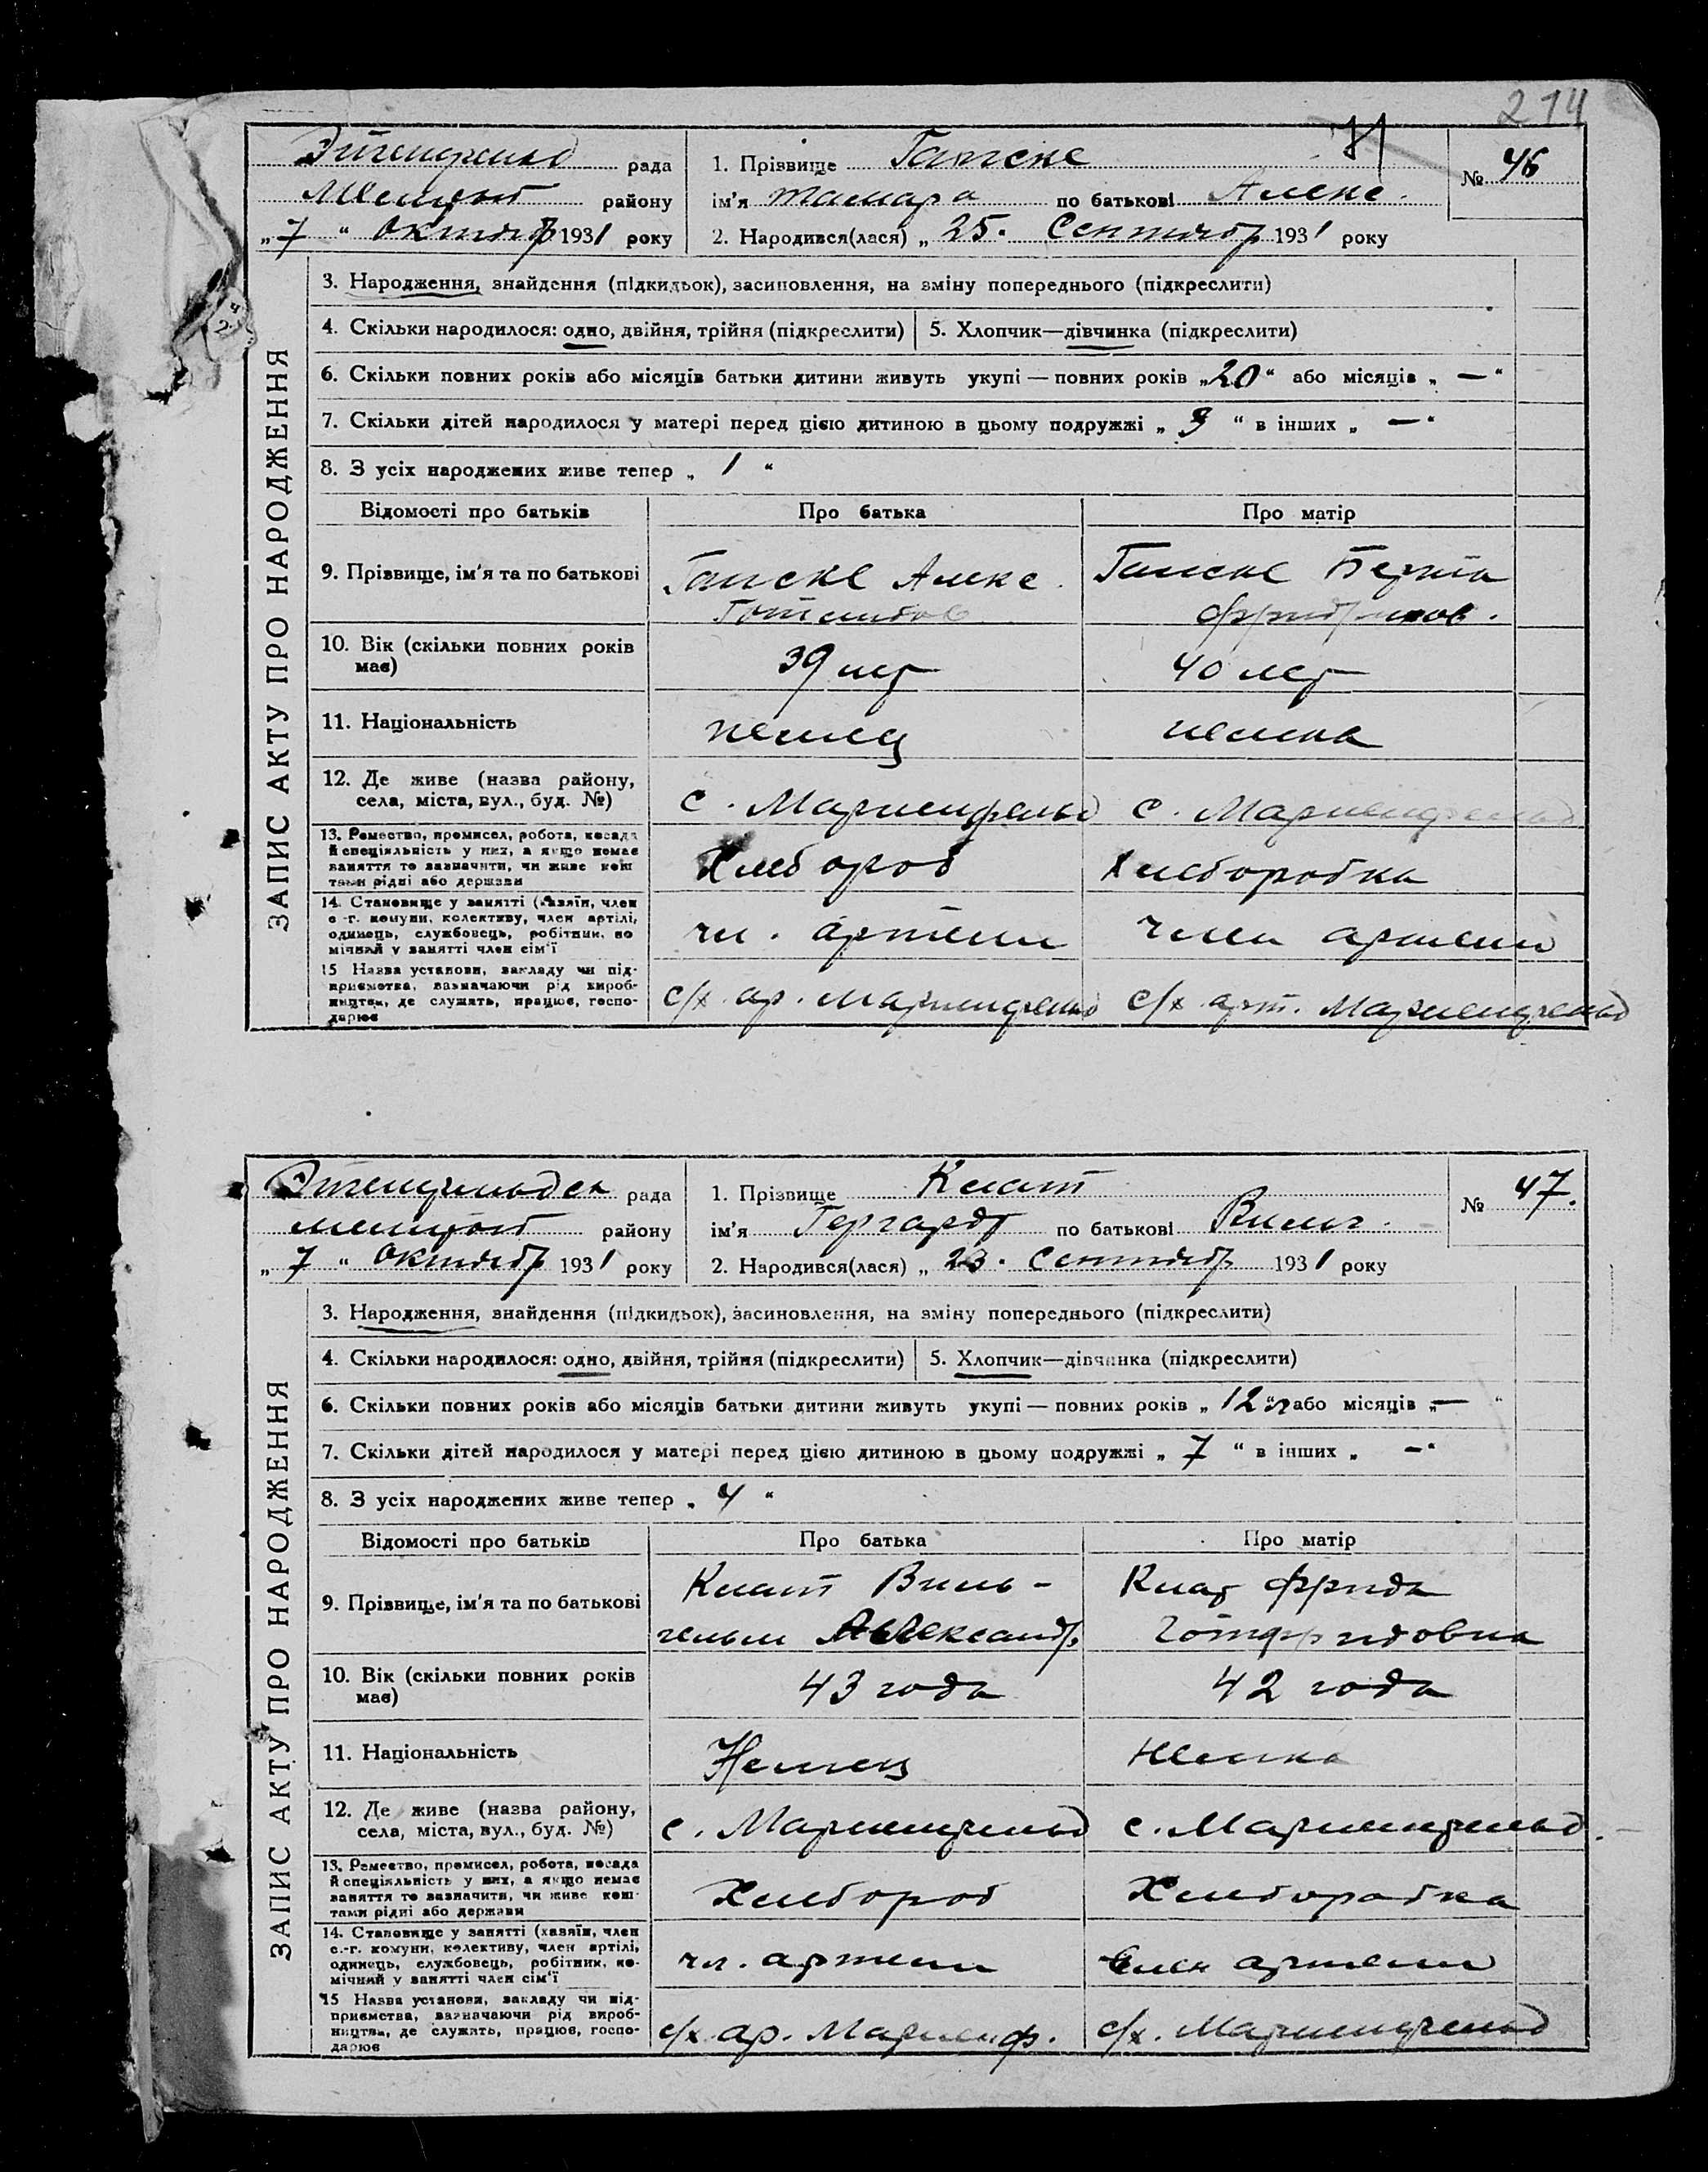 214
И
рада
района
1. Прізвище Ганске
№ 46
ім'я тамара по батькові Алекс.
„7" Октябр 1931 року
2. Народився(лася) „25. Сентябр 1931 року
ЗАПИС АКТУ ПРО НАРОДЖЕННЯ
3. Народження, знайдення (підкидьок), засиновлення, на зміну попереднього (підкреслити)
4. Скільки народилося: одно, двійня, трійня (підкреслити)
5. Хлопчик—дівчинка (підкреслити)
6. Скільки повних років або місяців батьки дитини живуть укупі — повних років „20" або місяців „—"
7. Скільки дітей народилося у матері перед цією дитиною в цьому подружжі „ " в інших „—"
8. З усіх народжених живе тепер „1"
Відомості про батьків
Про батька
Про матір
9. Прізвище, ім'я та по батькові
Ганске Алекс.
Готлибов
Ганске Берта
Фридрихов.
10. Вік (скільки повних років має)
39 лет
40 лет
11. Національність
немец
немка
12. Де живе (назва району,
села, міста, вул., буд. №)
с. Мариенфельд
с. Мариенфельд
13. Ремество, промисел, робота, посада
й спеціяльність у них, а якщо немає
заняття то зазначити, чи живе кош
тами рідні або держави
Хлебороб
Хлеборобка
14. Становище у занятті (хазяїн, член
с.-г. комуни, колективу, член артілі,
одинець, службовець, робітник, по
мічний у занятті член сім'ї
чл. артели
член артели
15 Назва установи, закладу чи під-
приємства, зазначаючи рід вироб-
ництва, де служать, працює, госпо-
дарює
с/х. ар. Мариенфельд
с/х арт. Мариенфельд
рада
району
1. Прізвище Клат
№ 47.
ім'я Гергардт по батькові Вильг.
„7" Октябр 1931 року
2. Народився(лася) „23. Сентябр 1931 року
ЗАПИС АКТУ ПРО НАРОДЖЕННЯ
3. Народження, знайдення (підкидьок), засиновлення, на зміну попереднього (підкреслити)
4. Скільки народилося: одно, двійня, трійня (підкреслити)
5. Хлопчик—дівчинка (підкреслити)
6. Скільки повних років або місяців батьки дитини живуть укупі — повних років „12" або місяців „—"
7. Скільки дітей народилося у матері перед цією дитиною в цьому подружжі „7" в інших „—"
8. З усіх народжених живе тепер „4"
Відомості про батьків
Про батька
Про матір
9. Прізвище, ім'я та по батькові
Клат Виль-
гельм Александр.
Клат Фрида
Готфридовна
10. Вік (скільки повних років
має)
43 года
42 года
11. Національність
Немец
немка
12. Де живе (назва району,
села, міста, вул., буд. №)
с. Мариенфельд
с. Мариенфельд.
13. Ремество, промисел, робота, посада
й спеціяльність у них, а якщо немає
заняття то зазначити, чи живе кош-
тами рідні або держави
Хлебороб
Хлеборобка
14. Становище у занятті (хазяїн, член
с.-г. комуни, колективу, член артілі,
одинець, службовець, робітник, по-
мічний у занятті член сім'ї
чл. артели
член артели
15 Назва установи, закладу чи під-
приємства, зазначаючи рід вироб-
ництва, де служать, працює, госпо-
дарює
с/х. ар. Мариенф.
с/х. Мариенфельд